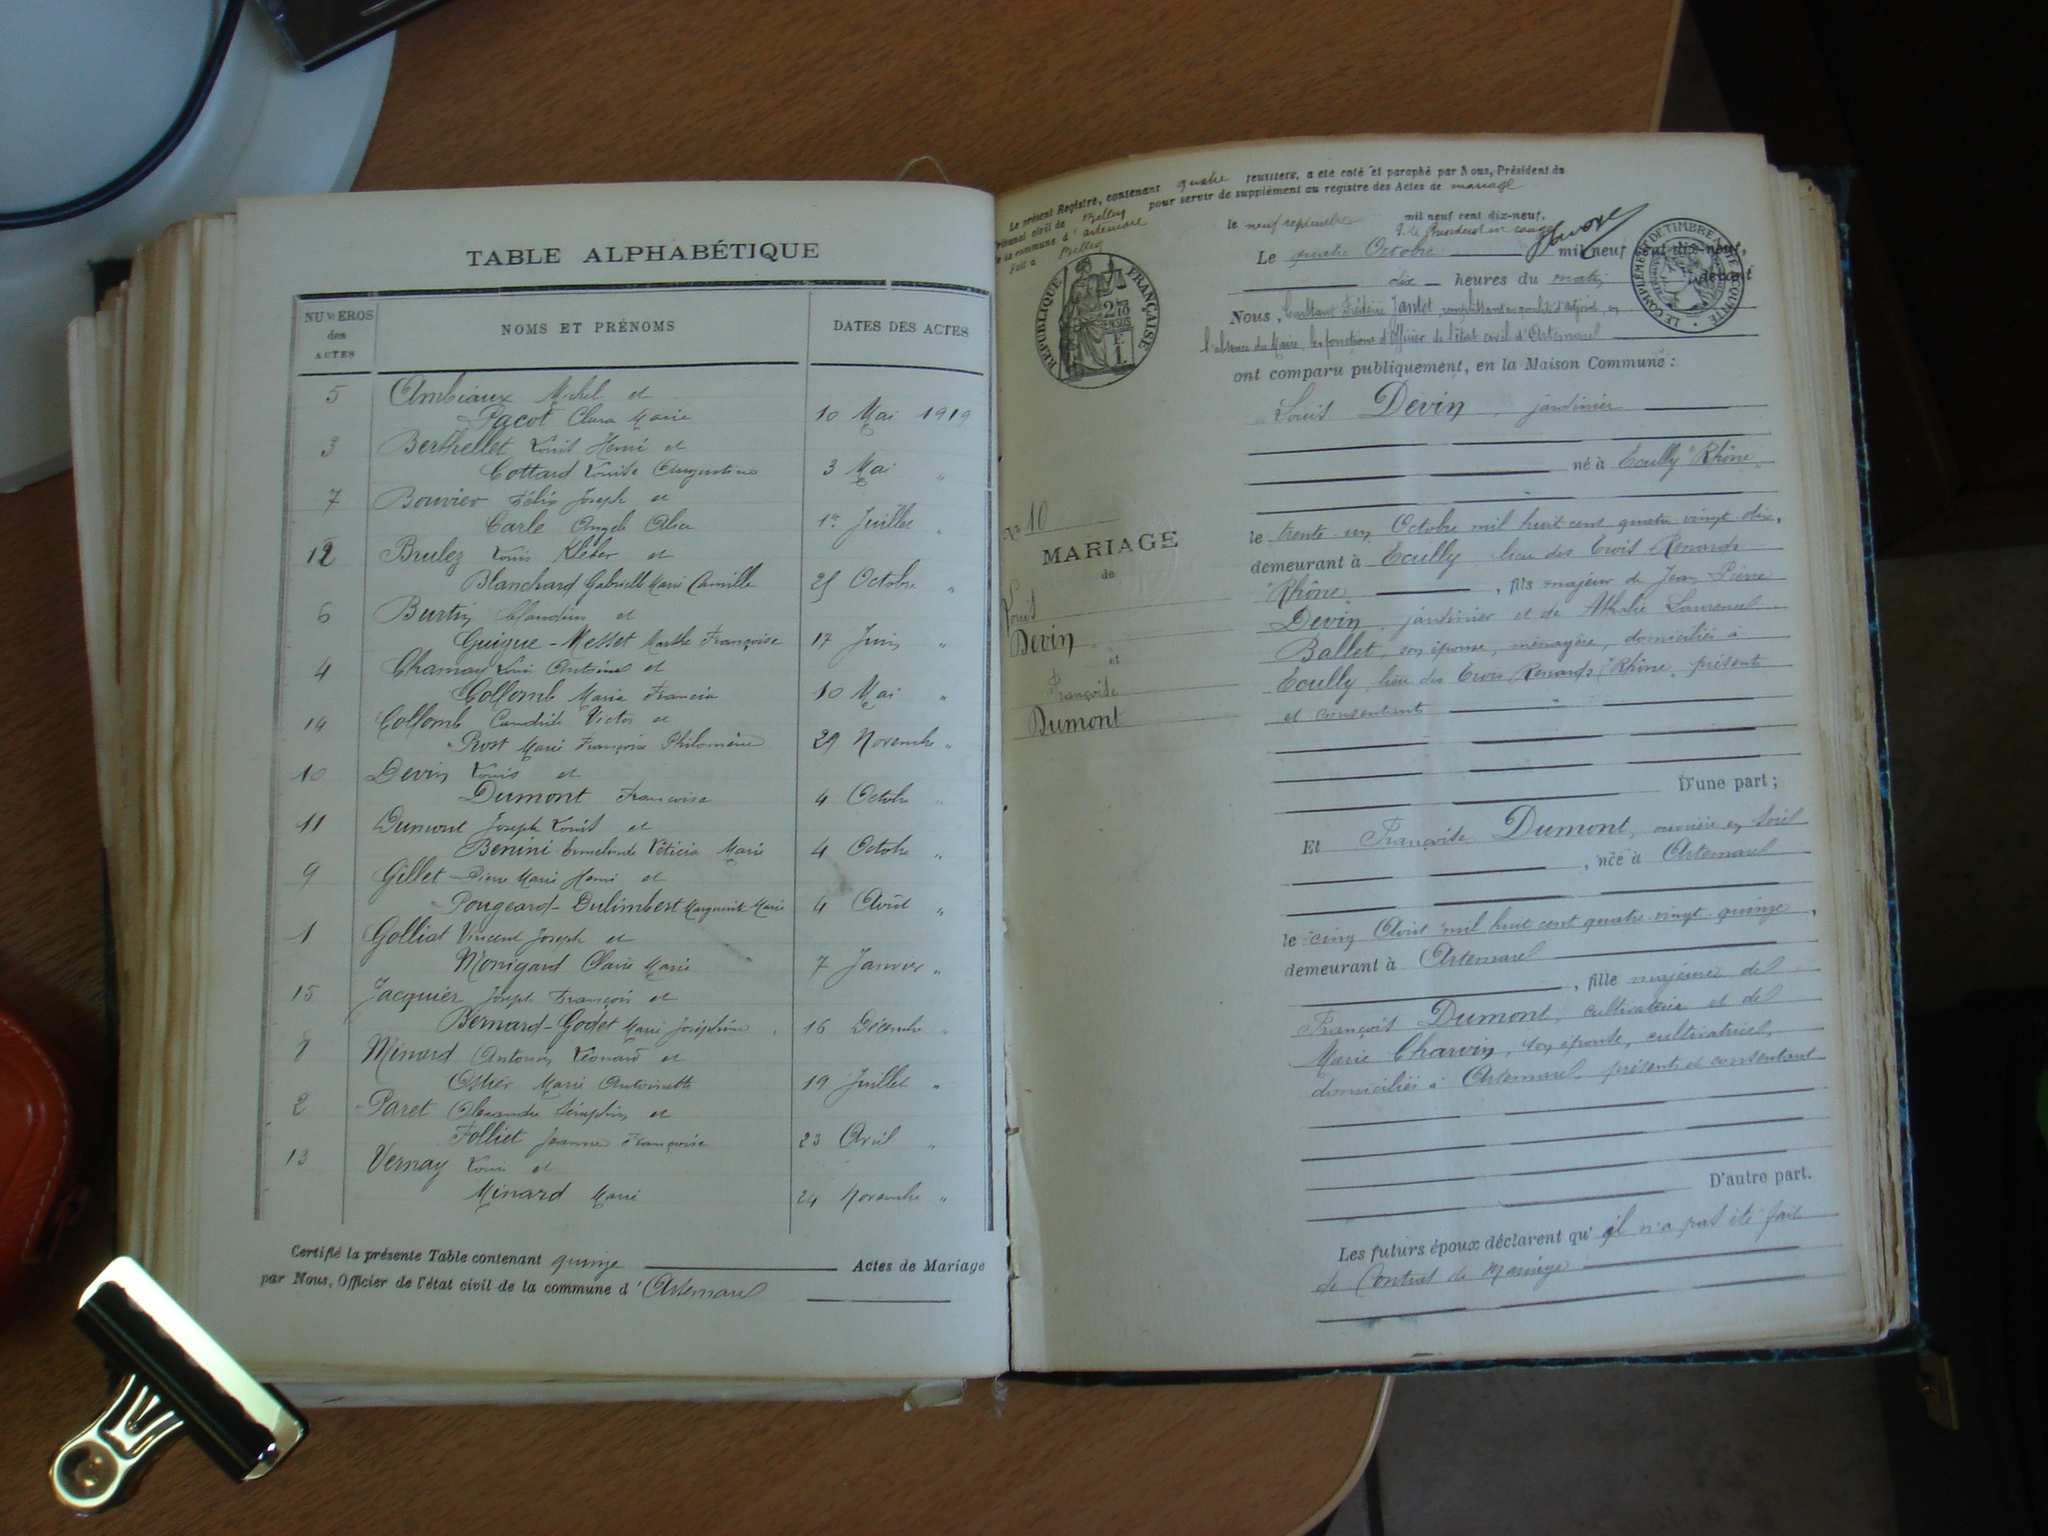 TABLE ALPHABÉTIQUE
NUMÉROS des ACTES
NOMS ET PRÉNOMS
DATES DES ACTES
5 Ambiaux Michel et
Pacot Clara Marie 10 Mai 1919
3 Berthellet Louis Henri et
Cottard Louise Augustine 3 Mai "
7 Bouvier Félix Joseph et
Carle Angèle Alice 1er Juillet "
12 Brulez Louis Kléber et
Blanchard Gabrielle Marie Camille 25 Octobre "
6 Burtin Claudius et
Guigue-Messet Marthe Françoise 17 Juin "
4 Chamay Louis Antoine et
Collomb Marie Francia 10 Mai "
14 Collomb Victor et
Prost Marie Françoise Philomène 29 Novembre "
10 Devin Louis et
Dumont Françoise 4 Octobre "
11 Dumont Joseph Louis et
Benini Léticia Marie 4 Octobre "
9 Gillet Pierre Marie Henri et
Pougeard-Dulimbert Marguerite Marie 4 Août "
1 Golliat Vincent Joseph et
Monigard Claire Marie 7 Janvier "
15 Jacquier Joseph François et
Bernard-Godet Marie Joséphine 16 Décembre "
8 Minard Antonin Léonard et
Ostier Marie Antoinette 19 Juillet "
2 Paret Alexandre Séraphin et
Folliet Jeanne Françoise 23 Avril "
13 Vernay Louis et
Minard Marie 24 Novembre "
Certifié la présente Table contenant quinze Actes de Mariage
par Nous, Officier de l'état civil de la commune d'Artemare
Le présent Registre, contenant quatre feuillets, a été coté et paraphé par Nous, Président du
Tribunal civil de Belley pour servir de supplément au registre des Actes de mariage
de la commune d'Artemare
Fait à Belley le neuf septembre mil neuf cent dix-neuf.
P. le Président en congé
RÉPUBLIQUE FRANÇAISE
LE COMPLÉMENT DE TIMBRE
Le quatre Octobre mil neuf cent dix-neuf,
dix heures du matin devant
Nous, Constant Frédéric Jantet, remplissant en qualité d'adjoint, en
l'absence du Maire, les fonctions d'Officier de l'état civil d'Artemare
ont comparu publiquement, en la Maison Commune :
Louis Devin, jardinier
né à Ecully "Rhône"
N° 10
MARIAGE
de
Louis
Devin
et
Françoise
Dumont
le trente-un Octobre mil huit cent quatre vingt dix,
demeurant à Ecully lieu des Trois Renards
"Rhône", fils majeur de Jean Pierre
Devin, jardinier et de Athalie Laurence
Ballet, son épouse, ménagère, domiciliés à
Ecully, lieu des Trois Renards, "Rhône", présents
et consentants
D'une part ;
Et Françoise Dumont, ouvrière en soie
, née à Artemare
le cinq Août mil huit cent quatre-vingt quinze,
demeurant à Artemare
, fille majeure de
François Dumont, cultivateur et de
Marie Charvin, son épouse, cultivatrice,
domiciliés à Artemare présents et consentant
D'autre part.
Les futurs époux déclarent qu'il n'a pas été fait
de Contrat de Mariage